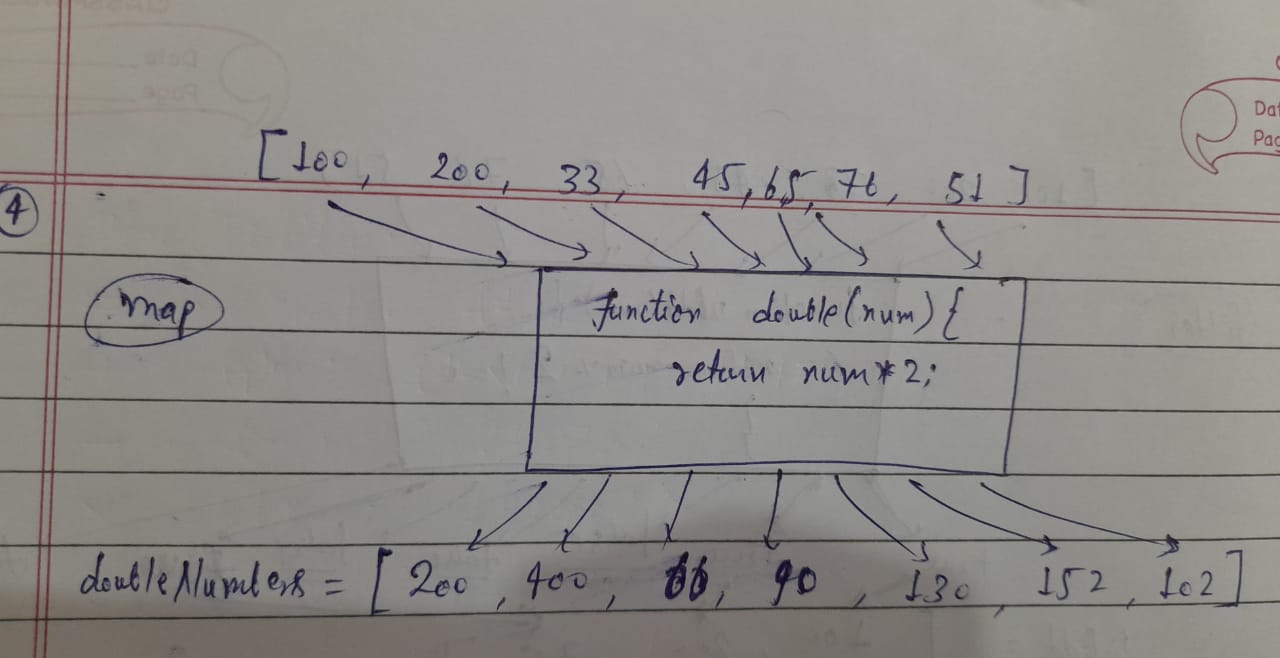 Dat
Pag
[100, 200, 33, 45, 65, 76, 51]
4
map
function double(num) {
return num * 2;
doubleNumbers = [200, 400, 66, 90, 130, 152, 102]